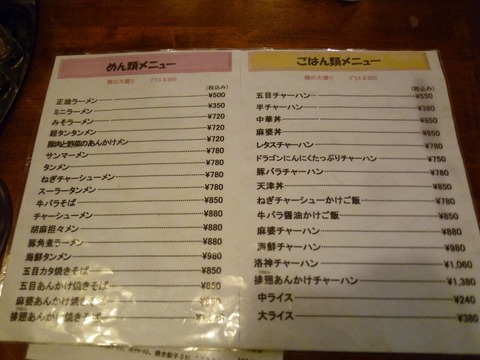 めん類メニュー
麺の大盛り プラス¥200
(税込み)
正油ラーメン ¥500
ミニラーメン ¥350
みそラーメン ¥720
担タンタンメン ¥720
豚肉と野菜のあんかけメン ¥720
サンマーメン ¥780
タンメン ¥780
ねぎチャーシューメン ¥780
スーラータンメン ¥780
牛バラそば ¥850
チャーシューメン ¥880
胡麻担々メン ¥880
豚角煮ラーメン ¥880
海鮮タンメン ¥980
五目カタ焼きそば ¥850
五目あんかけ焼きそば ¥850
麻婆あんかけ焼きそば ¥880
排翅あんかけ焼きそば
ごはん類メニュー
(税込み)
五目チャーハン ¥550
半チャーハン ¥380
中華丼 ¥850
麻婆丼 ¥850
レタスチャーハン ¥780
ドラゴンにんにくたっぷりチャーハン ¥750
豚バラチャーハン ¥780
天津丼 ¥850
ねぎチャーシューかけご飯 ¥850
牛バラ醤油かけご飯 ¥850
麻婆チャーハン ¥880
海鮮チャーハン ¥980
洛神チャーハン ¥1,060
排翅あんかけチャーハン ¥1,380
中ライス ¥240
大ライス ¥380